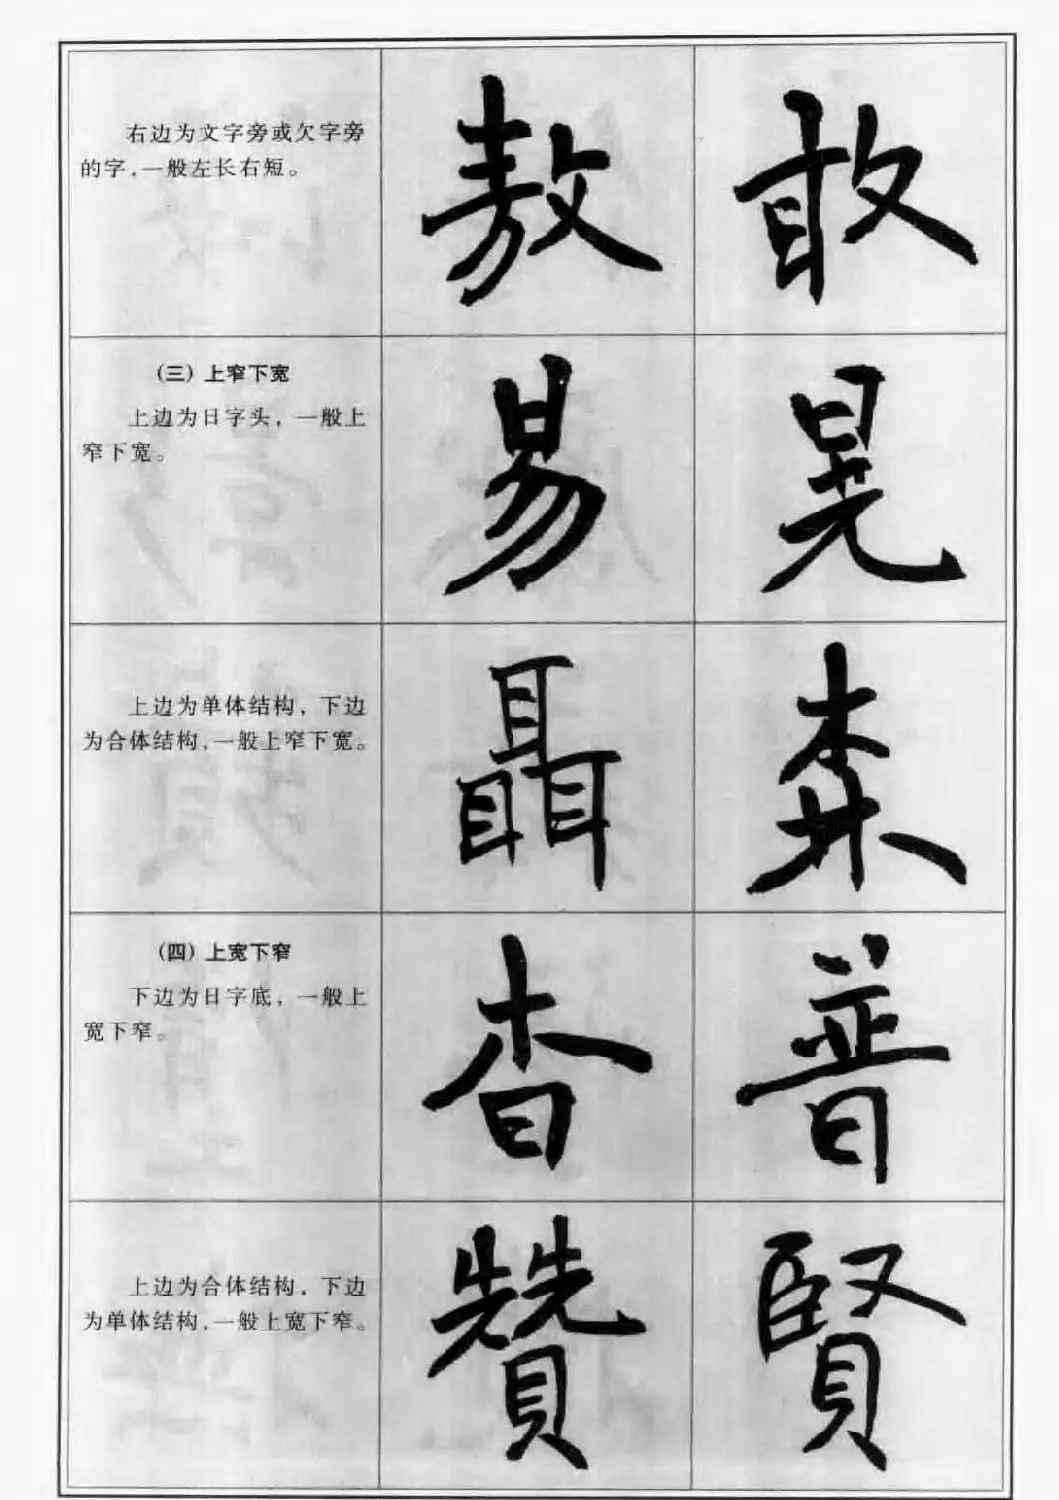 右边为文字旁或欠字旁
的字,一般左长右短。
敖 敢
(三) 上窄下宽
上边为日字头, 一般上
窄下宽。
易 晃
上边为单体结构, 下边
为合体结构,一般上窄下宽。
聶 森
(四) 上宽下窄
下边为日字底, 一般上
宽下窄。
杳 普
上边为合体结构, 下边
为单体结构,一般上宽下窄。
贊 賢